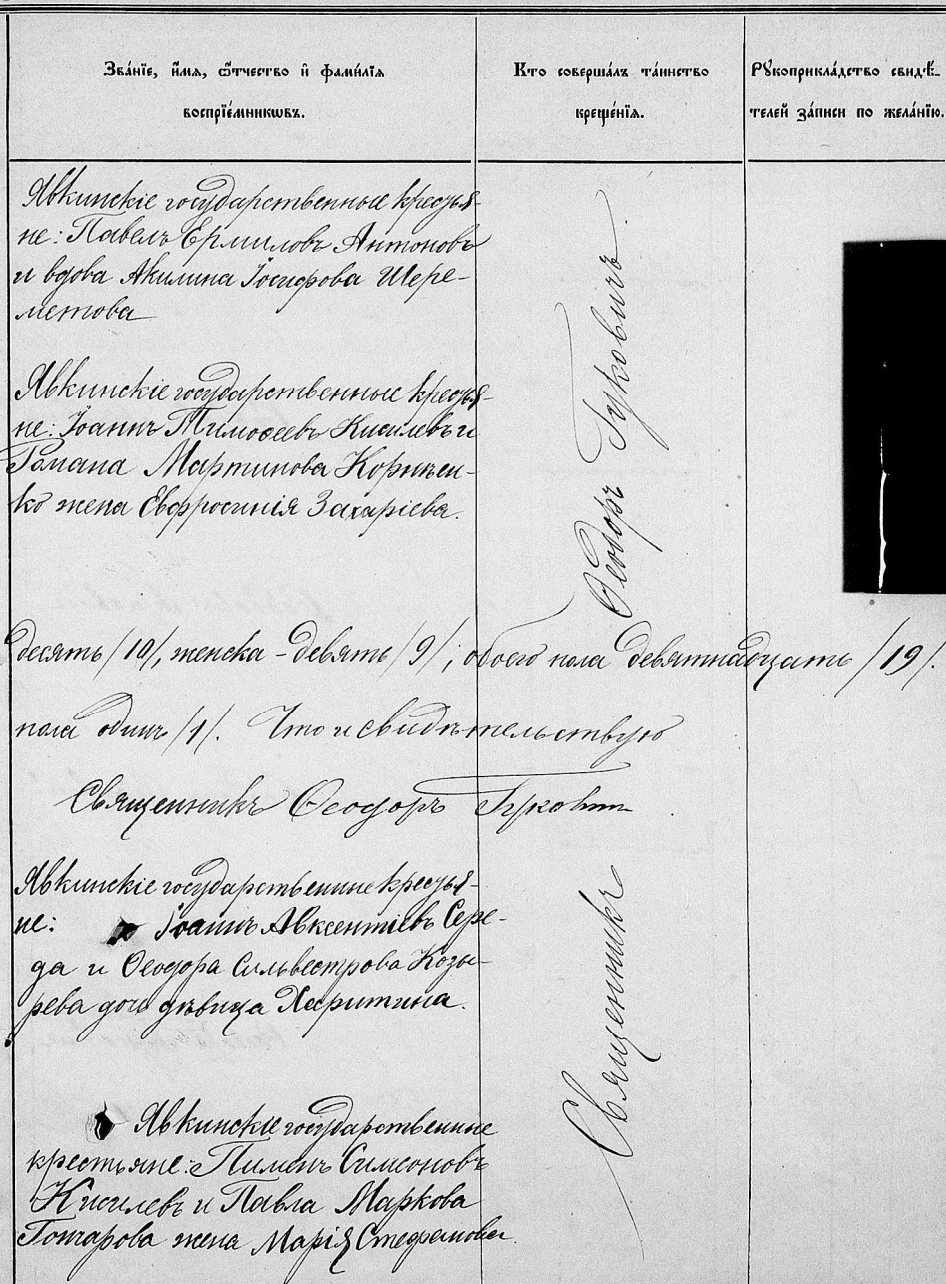 Зва́нїе, и҆́мѧ, ѻ҆́тчество и҆ фами́лїѧ
воспрїе́мникѡвъ.
Кто соверша́лъ та́инство
креще́нїѧ.
Рꙋкоприкла́дство свидѣ́-
телей за́писи по жела́нїю.
Явкинскіе государственные кресть-
не: Павелъ Ермиловъ Антоновъ
и вдова Акилина Іосифова Шере-
метова
Явкинскіе государственные кресть-
не: Іоаннъ Тимоѳеевъ Кисилевъ и
Романа Мартинова Корнѣен-
ко жена Евфросинія Захаріева.
Ѳеодоръ Гукович
десять /10/, женска - девять /9/, обоего пола девятнадцать /19/.
пола одинъ /1/. Что и свидѣтельствую
Священникъ Ѳеодоръ Гукович
Явкинскіе государственные кресть-
не: Іоаннъ Авксентіевъ Сере-
да и Ѳеодора Сильвестрова Козы-
рева дочь дѣвица Харитина.
Священникъ
Явкинскіе государственные
крестьяне: Пименъ Симеоновъ
Кисилевъ и Павла Маркова
Гончарова жена Марія Стефанова